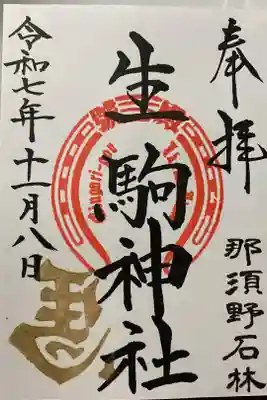 奉拝
那須野石林
生駒神社
令和七年十一月八日
馬